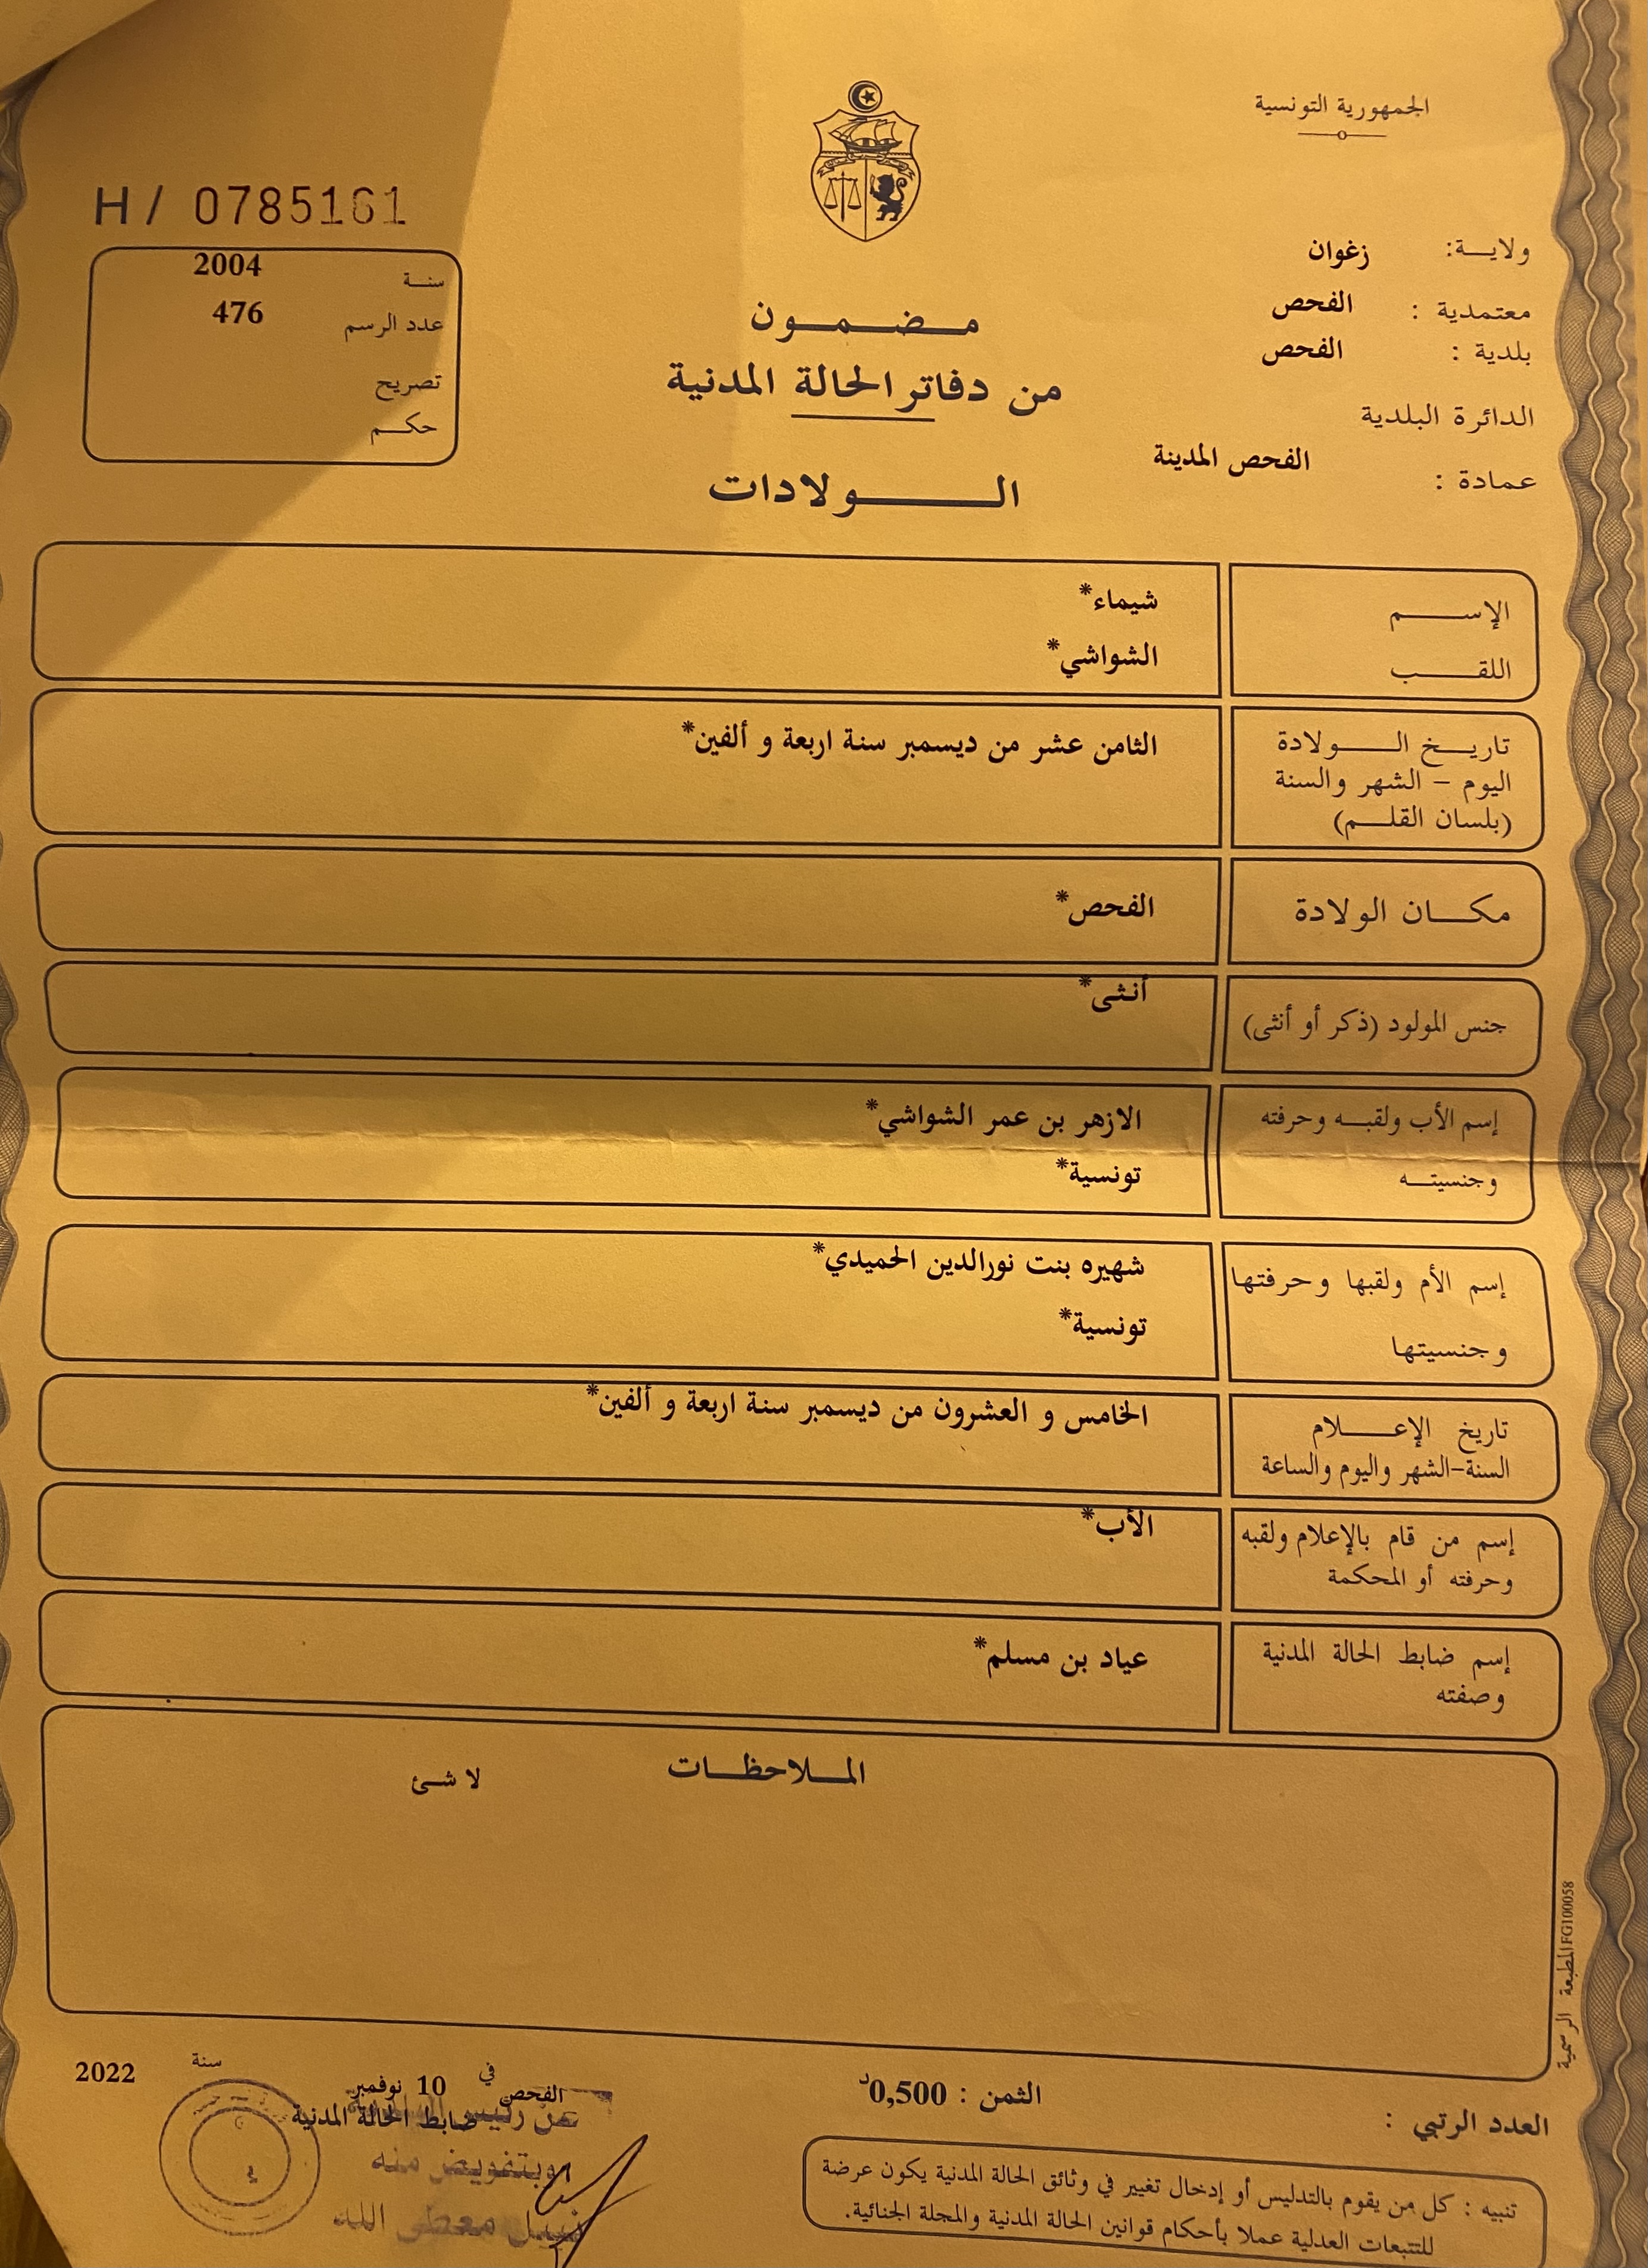 الجمهورية التونسية
H/ 0785161
ولايـــة: زغوان
معتمدية : الفحص
بلدية : الفحص
الدائرة البلدية
عمادة : الفحص المدينة
سنـــة 2004
عدد الرسم 476
تصريح
حكـــم
مـــضـــمـــون
من دفاتر الحالة المدنية
الـــــولادات
الإســـــم شيماء*
اللقـــــب الشواشي*
تاريـــخ الـــــولادة الثامن عشر من ديسمبر سنة اربعة و ألفين*
اليوم – الشهر والسنة
(بلسان القلـــم)
مكـــان الولادة الفحص*
جنس المولود (ذكر أو أنثى) أنثى*
إسم الأب ولقبـــه وحرفته الازهر بن عمر الشواشي*
وجنسيتـــه تونسية*
إسم الأم ولقبها وحرفتها شهيره بنت نورالدين الحميدي*
وجنسيتها تونسية*
تاريخ الإعـــــلام الخامس و العشرون من ديسمبر سنة اربعة و ألفين*
السنة-الشهر واليوم والساعة
إسم من قام بالإعلام ولقبه الأب*
وحرفته أو المحكمة
إسم ضابط الحالة المدنية عياد بن مسلم*
وصفته
المـــلاحظـــات
لا شئ
المطبعة الرسمية FG100058
الفحص في 10 نوفمبر سنة 2022
ضابط الحالة المدنية
عن رئيس
وبتفويض منه
نبيل معطى الله
الثمن : 0,500د
العدد الرتبي :
تنبيه : كل من يقوم بالتدليس أو إدخال تغيير في وثائق الحالة المدنية يكون عرضة
للتتبعات العدلية عملا بأحكام قوانين الحالة المدنية والمجلة الجنائية.